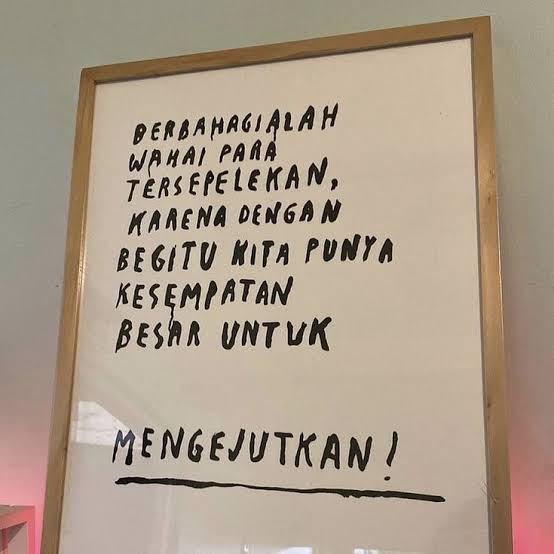 BERBAHAGIALAH
WAHAI PARA
TERSEPELEKAN,
KARENA DENGAN
BEGITU KITA PUNYA
KESEMPATAN
BESAR UNTUK
MENGEJUTKAN!